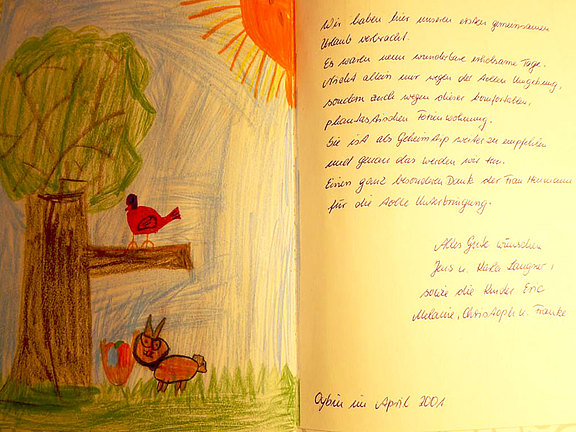 Wir haben hier unseren ersten gemeinsamen
Urlaub verbracht.
Es waren neun wunderbare erholsame Tage.
Nicht allein nur wegen der tollen Umgebung,
sondern auch wegen dieser komfortablen,
phantastischen Ferienwohnung.
Sie ist als Geheimtip weiter zu empfehlen
und genau das werden wir tun.
Einen ganz besonderen Dank der Frau Hermann
für die tolle Unterbringung.
Alles Gute wünschen
Jens u.
sowie die Kinder Eric
Melanie, Christoph u. Franke
Oybin im April 2001